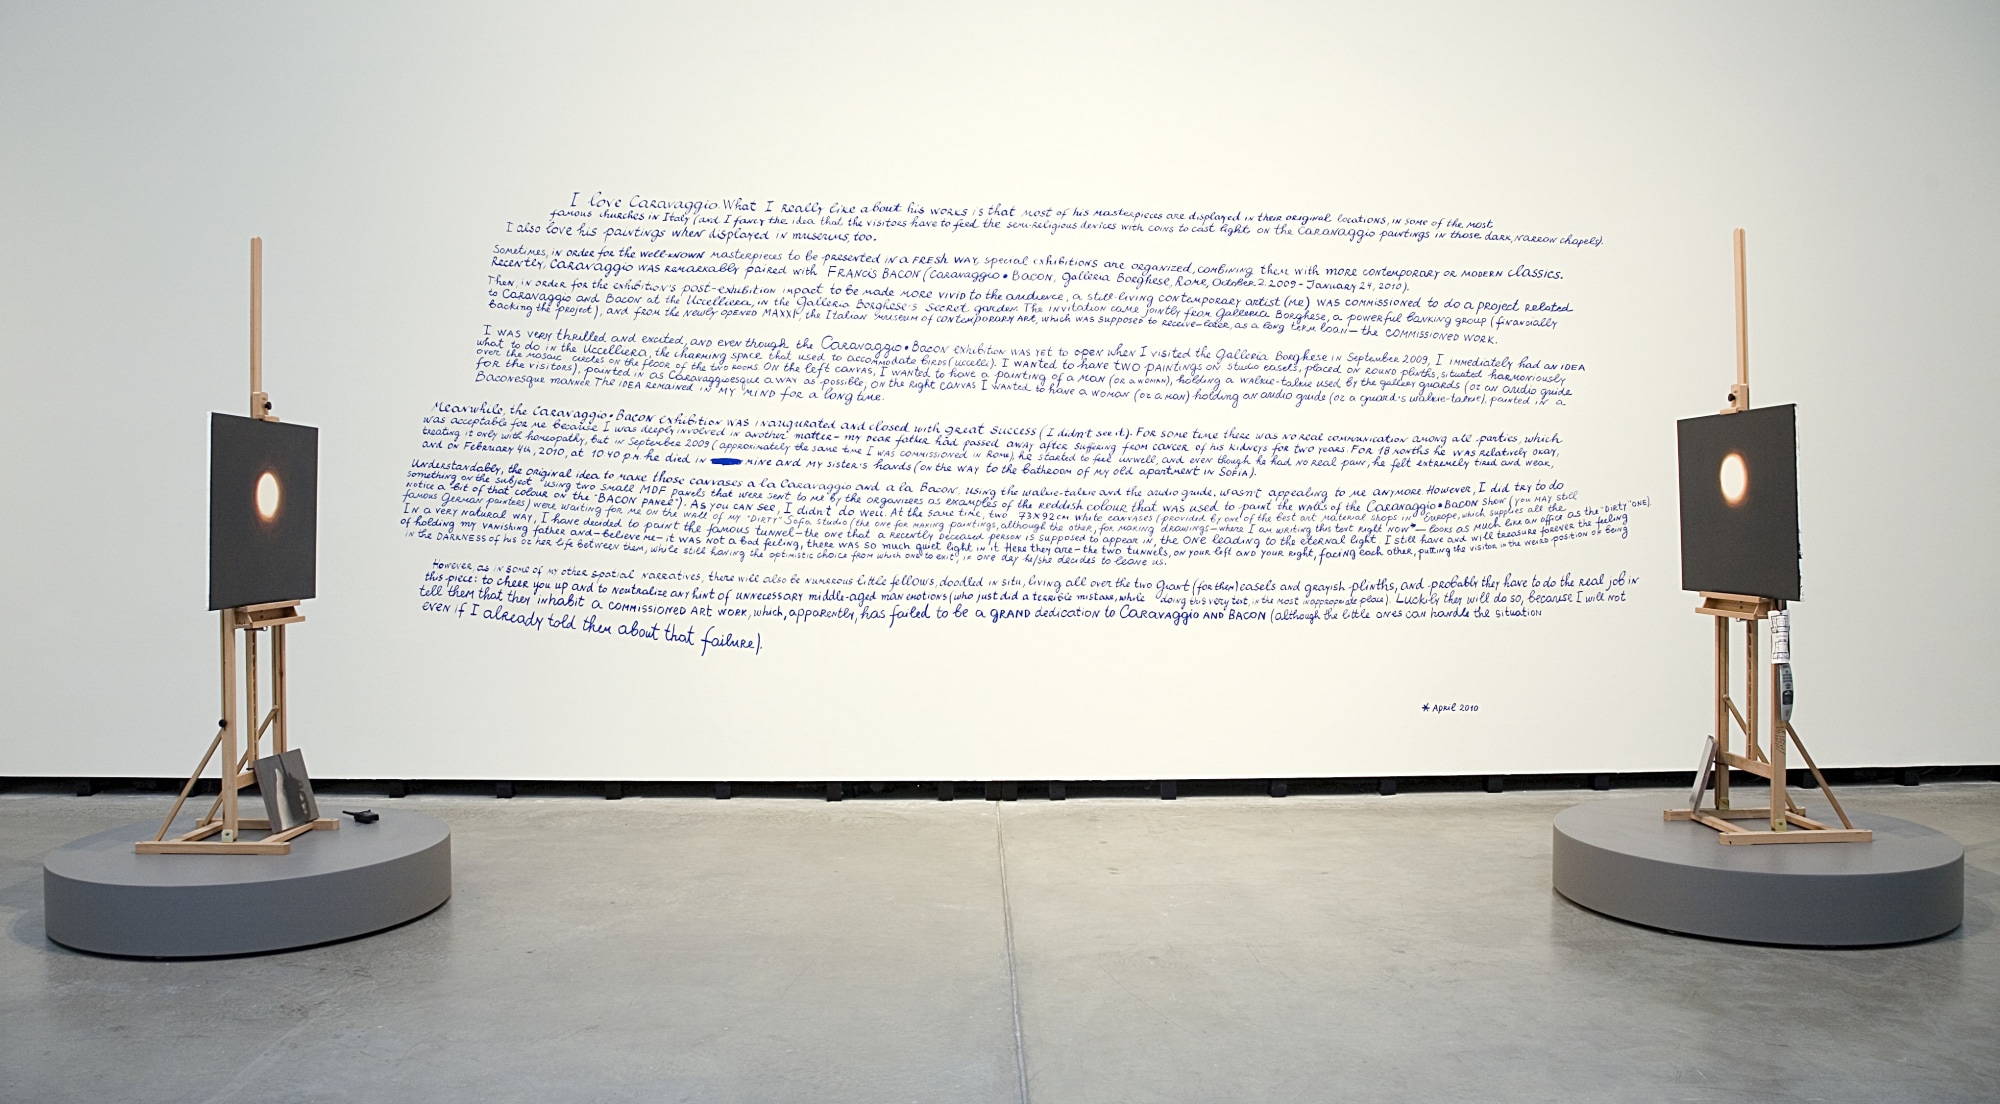 I love Caravaggio. What I really like about his works is that most of his masterpieces are displayed in their original locations, in some of the most
famous churches in Italy (and I fancy the idea that the visitors have to feed the semi-religious devices with coins to cast light on the Caravaggio paintings in those dark, narrow chapels).
I also love his paintings when displayed in museums, too.
Sometimes, in order for the well-known masterpieces to be presented in a fresh way, special exhibitions are organized, combining them with more contemporary or modern classics.
Recently, Caravaggio was remarkably paired with Francis Bacon (Caravaggio • Bacon, Galleria Borghese, Rome, October 2 2009 - January 24, 2010).
Then, in order for the exhibition's post-exhibition impact to be made more vivid to the audience, a still-living contemporary artist (me) was commissioned to do a project related
to Caravaggio and Bacon at the Uccelliera, in the Galleria Borghese's secret garden. The invitation came jointly from Galleria Borghese, a powerful banking group (financially
backing the project), and from the newly opened MAXXI, the Italian museum of contemporary art, which was supposed to receive–later, as a long term loan–the commissioned work.
I was very thrilled and excited, and even though the Caravaggio • Bacon exhibition was yet to open when I visited the Galleria Borghese in September 2009, I immediately had an idea
what to do in the Uccelliera, the charming space that used to accommodate birds (uccelli). I wanted to have two paintings on studio easels, placed on round plinths, situated harmoniously
over the mosaic circles on the floor of the two rooms. On the left canvas, I wanted to have a painting of a man (or a woman), holding a walkie-talkie used by the gallery guards (or an audio guide
for the visitors), painted in as Caravaggioesque a way as possible; on the right canvas I wanted to have a woman (or a man) holding an audio guide (or a guard's walkie-talkie), painted in a
Baconesque manner The idea remained in my mind for a long time.
Meanwhile, the Caravaggio • Bacon exhibition was inaugurated and closed with great success (I didn't see it). For some time there was no real communication among all parties, which
was acceptable for me because I was deeply involved in another matter– my dear father had passed away after suffering from cancer of his kidneys for two years. For 18 months he was relatively okay,
treating it only with homeopathy, but in September 2009 (approximately the same time I was commissioned in Rome), he started to feel unwell, and even though he had no real pain, he felt extremely tired and weak,
and on February 4th, 2010, at 10:40 p.m. he died in mine and my sister's hands (on the way to the bathroom of my old apartment in Sofia).
Understandably, the original idea to make those canvases a la Caravaggio and a la Bacon, using the walkie-talkie and the audio guide, wasn't appealing to me anymore. However, I did try to do
something on the subject using two small MDF panels that were sent to me by the organizers as examples of the reddish colour that was used to paint the walls of the Caravaggio • Bacon show (you may still
notice a bit of that colour on the "Bacon panel"). As you can see, I didn't do well. At the same time, two 73x92cm white canvases (provided by one of the best art material shops in Europe, which supplies all the
famous German painters) were waiting for me on the wall of my "dirty" Sofia studio (the one for making paintings, although the other, for making drawings–where I am writing this text right now*– looks as much like an office as the "dirty" one).
In a very natural way, I have decided to paint the famous tunnel–the one that a recently deceased person is supposed to appear in, the one leading to the eternal light. I still have and will treasure forever the feeling
of holding my vanishing father and–believe me–it was not a bad feeling, there was so much quiet light in it. Here they are– the two tunnels, on your left and your right, facing each other, putting the visitor in the weird position of being
in the darkness of his or her life between them, while still having the optimistic choice from which one to exit, if one day he/she decides to leave us.
However, as in some of my other spatial narratives, there will also be numerous little fellows, doodled in situ, living all over the two giant (for them) easels and grayish plinths, and probably they have to do the real job in
this piece: to cheer you up and to neutralize any hint of unnecessary middle-aged man emotions (who just did a terrible mistake, while doing this very text, in the most inappropriate place). Luckily they will do so, because I will not
tell them that they inhabit a commissioned art work, which, apparently, has failed to be a grand dedication to Caravaggio and Bacon (although the little ones can handle the situation
even if I already told them about that failure).
* April 2010